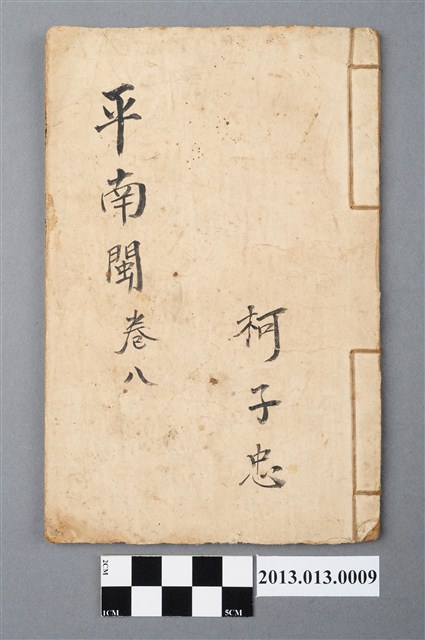 平南閩卷八
柯子忠
2CM
1CM
5CM
2013.013.0009